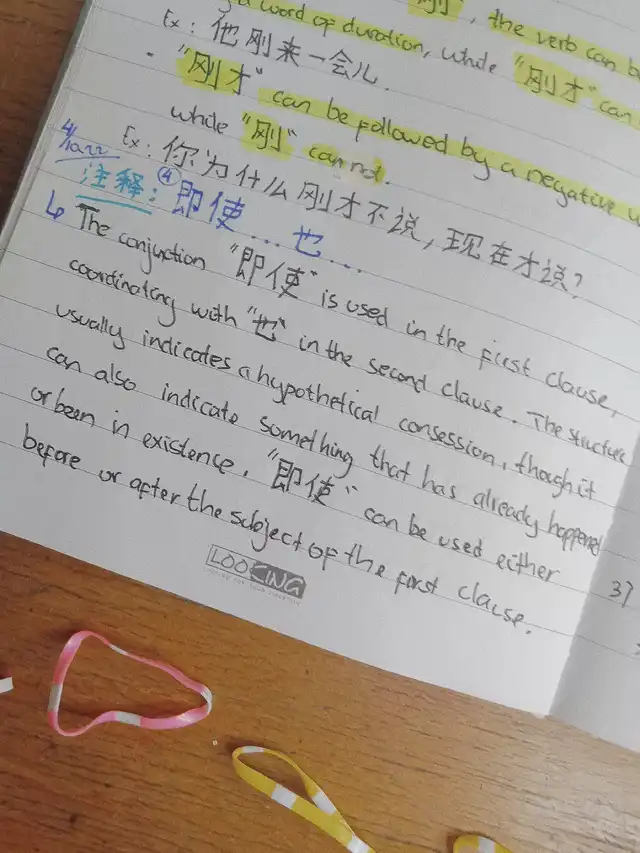 "刚", the verb can be
a word of duration, while "刚才" can
Ex: 他刚来一会儿.
· "刚才" can be followed by a negative
while "刚" can not.
Ex: 你为什么刚才不说, 现在才说?
注释: ④ 即使... 也...
↳ The conjunction "即使" is used in the first clause,
coordinating with "也" in the second clause. The structure
usually indicates a hypothetical consession, though it
can also indicate something that has already happened
or been in existence. "即使" can be used either
before or after the subject of the first clause.
LOOKING
37